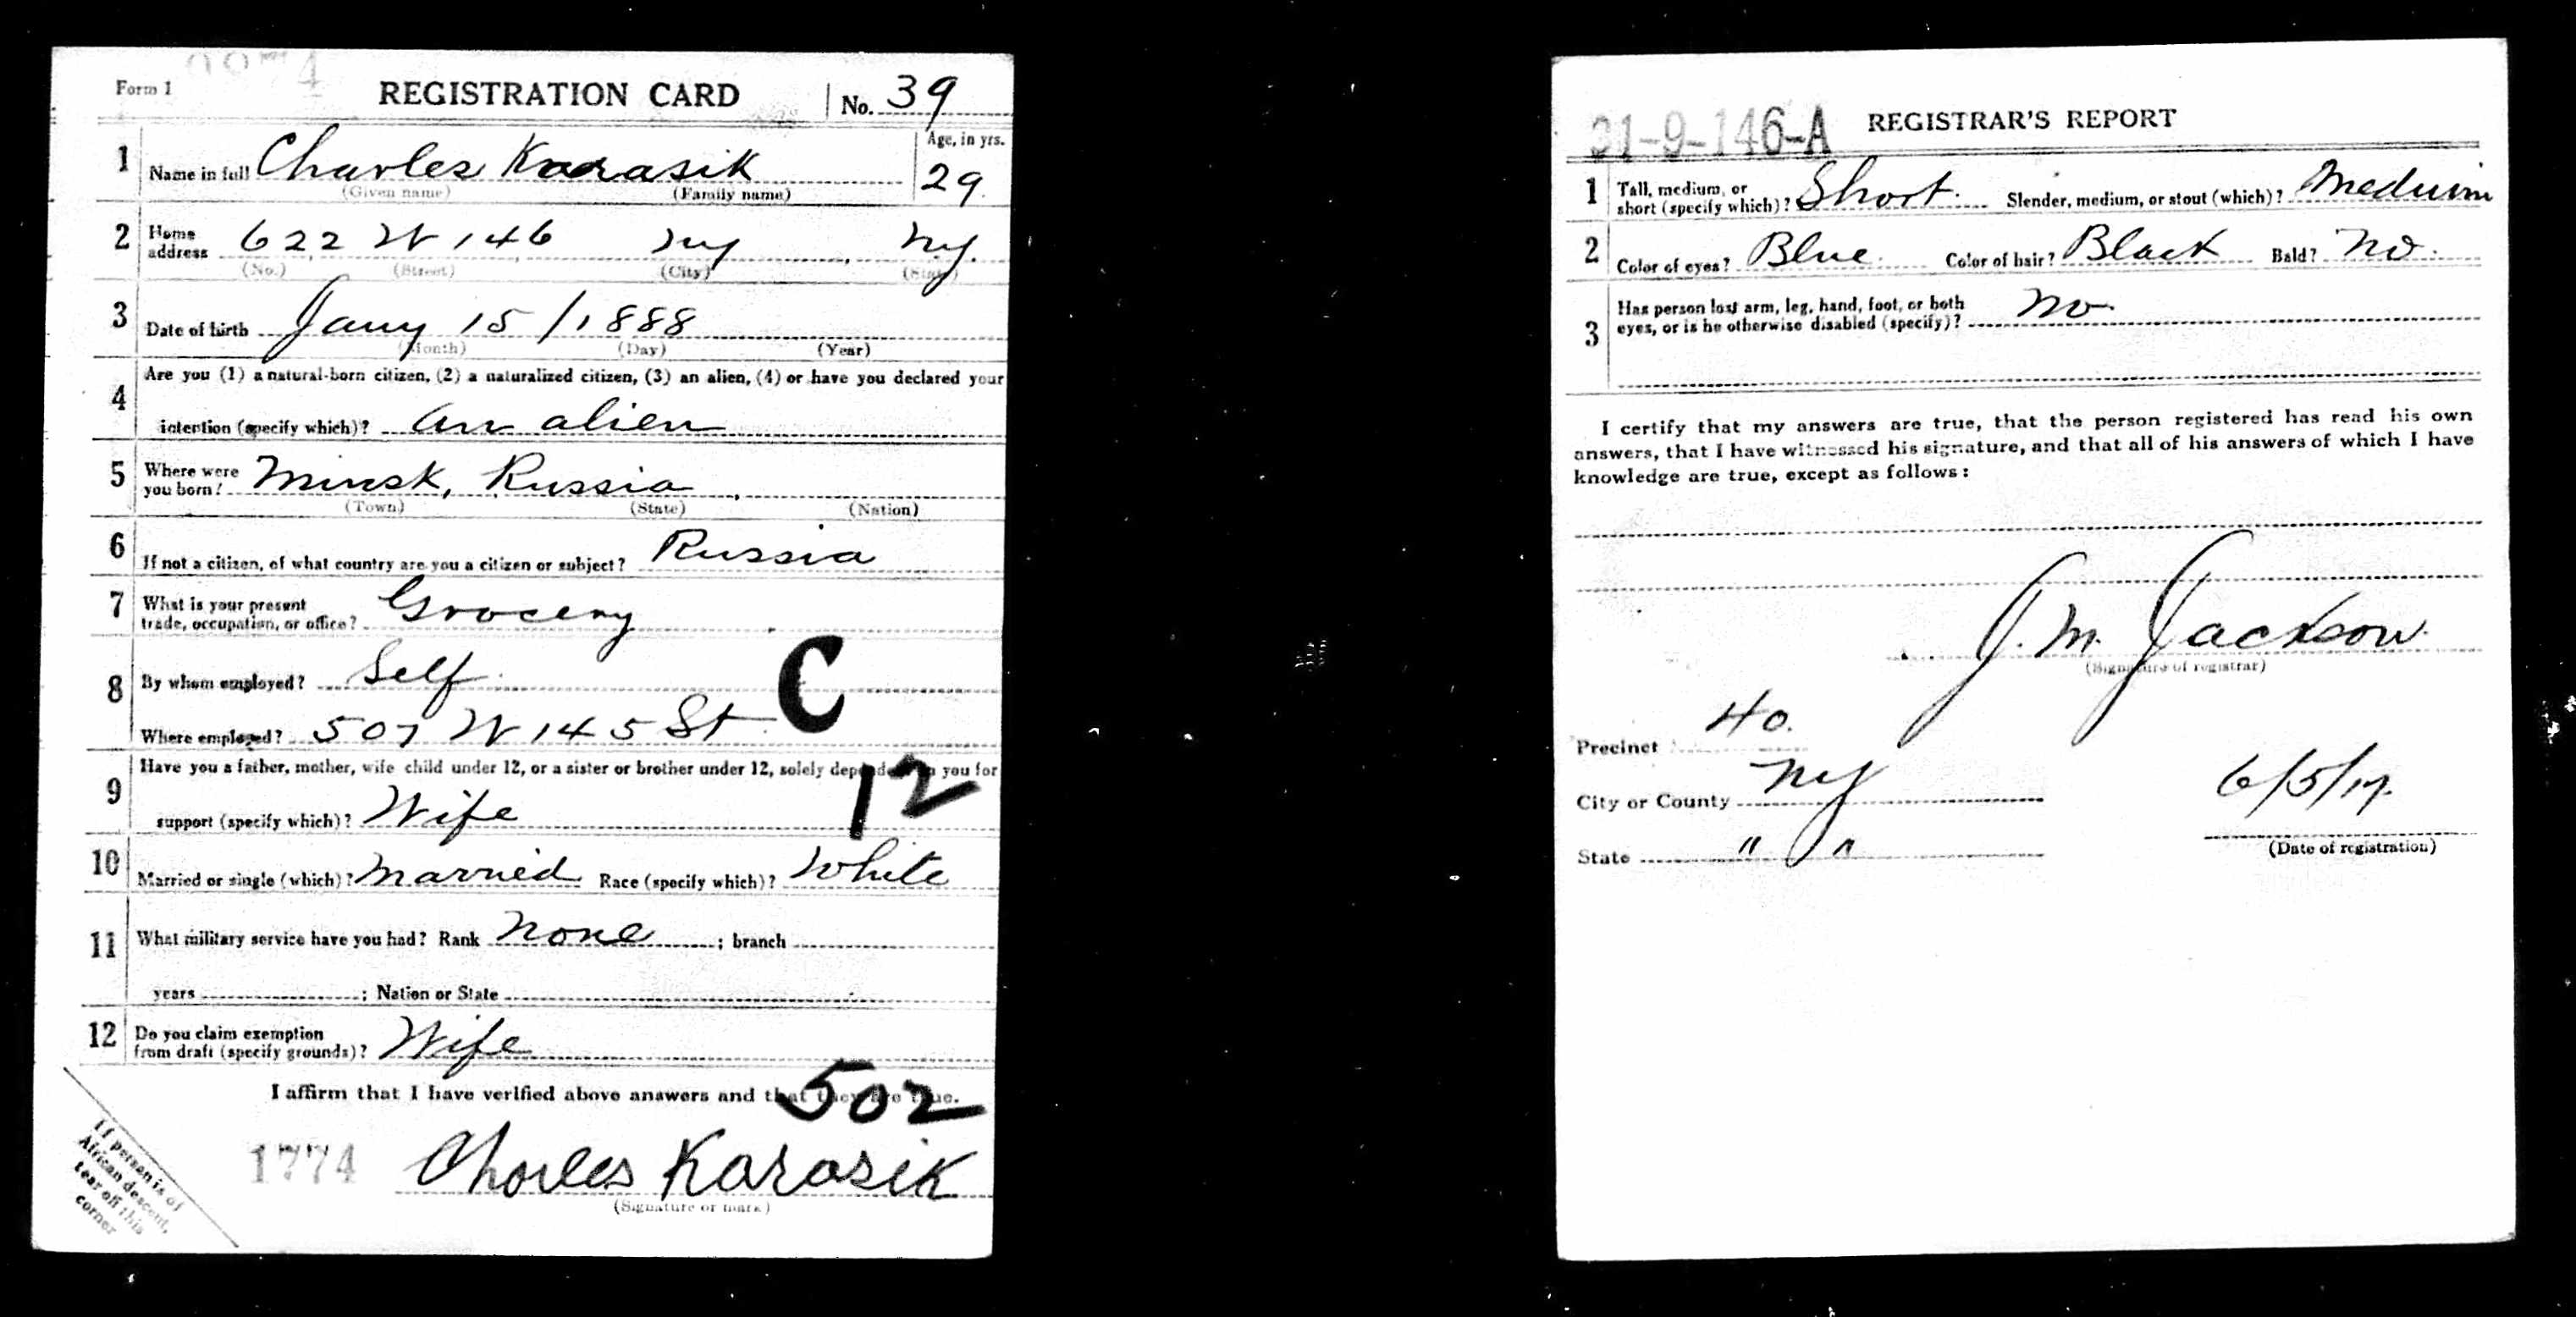 Form 1 REGISTRATION CARD No. 39
1 Name in full Charles Karasik Age, in yrs. 29
(Given name) (Family name)
2 Home address 622 W 146 NY NY.
(No.) (Street) (City) (State)
3 Date of birth Jany 15 / 1888
(Month) (Day) (Year)
4 Are you (1) a natural-born citizen, (2) a naturalized citizen, (3) an alien, (4) or have you declared your
intention (specify which)? an alien
5 Where were you born? Minsk, Russia
(Town) (State) (Nation)
6 If not a citizen, of what country are you a citizen or subject? Russia
7 What is your present trade, occupation, or office? Grocery
8 By whom employed? Self
C
Where employed? 507 W 145 St
9 Have you a father, mother, wife child under 12, or a sister or brother under 12, solely dependent on you for
12
support (specify which)? Wife
10 Married or single (which)? Married Race (specify which)? White
11 What military service have you had? Rank None ; branch
years ; Nation or State
12 Do you claim exemption from draft (specify grounds)? Wife
I affirm that I have verified above answers and that they are true.
502
1774 Charles Karasik
(Signature or mark)
If person is of
African descent,
tear off this
corner
31-9-146-A REGISTRAR'S REPORT
1 Tall, medium, or short (specify which)? Short. Slender, medium, or stout (which)? Medium
2 Color of eyes? Blue. Color of hair? Black Bald? No.
3 Has person lost arm, leg, hand, foot, or both eyes, or is he otherwise disabled (specify)? No.
I certify that my answers are true, that the person registered has read his own
answers, that I have witnessed his signature, and that all of his answers of which I have
knowledge are true, except as follows:
J. M. Jackson.
(Signature of registrar)
Precinct 40.
City or County NY 6/5/17.
State " " (Date of registration)